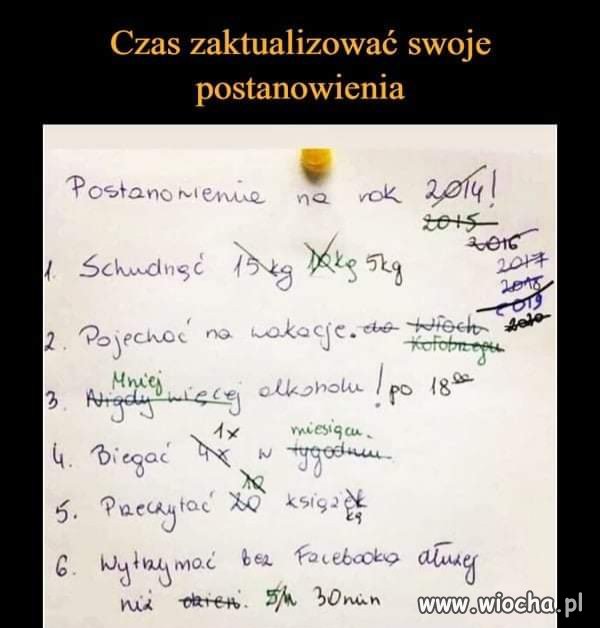 Czas zaktualizować swoje
postanowienia
Postanowienie na rok 2014!
2015
2016
2017
2018
2019
2020
1. Schudnąć 15kg 10kg 5kg
2. Pojechać na wakacje. do Włoch
Kołobrzegu
Mniej
3. Nigdy więcej alkoholu! po 18⁰⁰
1x miesiącu.
4. Biegać 4x w tygodniu
10
5. Przeczytać 20 książek
kę
6. Wytrzymać bez Facebooka dłużej
niż dzień. 5h 30min
www.wiocha.pl